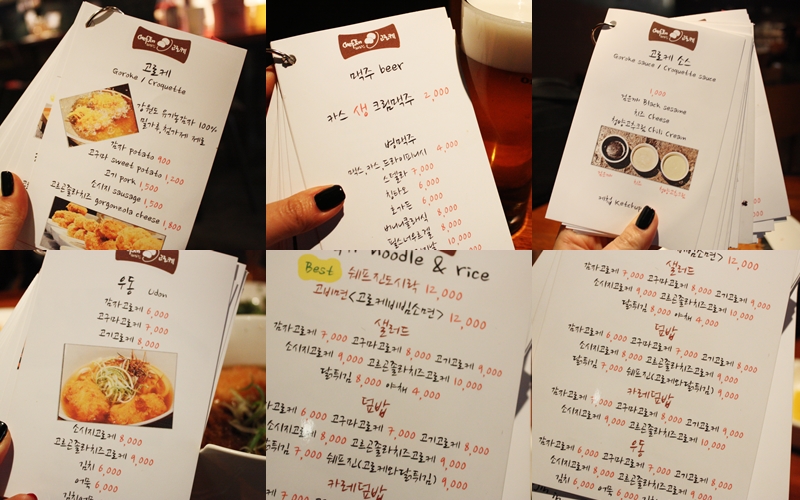 고로케
Goroke / Croquette
강원도 유기농감자 100%
감자 potato 900
고구마 sweet potato 1,200
고기 pork 1,500
소시지 sausage 1,500
고르곤졸라치즈 gorgoneola cheese 1,800
맥주 beer
카스 생 크림맥주 2,000
병맥주
맥스, 카스, 드라이피니시 4,000
스텔라 7,000
칭타오 6,000
호가든 6,000
바나나클래식 8,000
8,000
10,000
고로케 소스
Goroke sauce / Croquette sauce
1,000
검은깨 Black sesame
치즈 Cheese
청양고추크림 Chili Cream
케첩 Ketchup
우동 Udon
감자고로케 6,000
고구마고로케 7,000
고기고로케 8,000
소시지고로케 8,000
고르곤졸라치즈고로케 9,000
김치 6,000
어묵 6,000
김치어묵
noodle & rice
Best 쉐프진도시락 12,000
고비면<고로케비빔소면> 12,000
샐러드
감자고로케 7,000 고구마고로케 8,000 고기고로케 9,000
소시지고로케 9,000 고르곤졸라치즈고로케 10,000
닭튀김 8,000 야채 4,000
덮밥
고로케 6,000 고구마고로케 7,000 고기고로케 8,000
소시지고로케 8,000 고르곤졸라치즈고로케 9,000
닭튀김 7,000 쉐프진(고로케와닭튀김) 9,000
카레덮밥
비빔소면> 12,000
샐러드
감자고로케 7,000 고구마고로케 8,000 고기고로케 9,000
소시지고로케 9,000 고르곤졸라치즈고로케 10,000
닭튀김 8,000 야채 4,000
덮밥
감자고로케 6,000 고구마고로케 7,000 고기고로케 8,000
소시지고로케 8,000 고르곤졸라치즈고로케 9,000
닭튀김 7,000 쉐프진(고로케와닭튀김) 9,000
카레덮밥
감자고로케 7,000 고구마고로케 8,000 고기고로케 9,000
소시지고로케 9,000 고르곤졸라치즈고로케 10,000
우동
감자고로케 6,000 고구마고로케 7,000 고기고로케 8,000
소시지고로케 8,000 고르곤졸라치즈고로케 9,000
김치 6,000 어묵 6,000